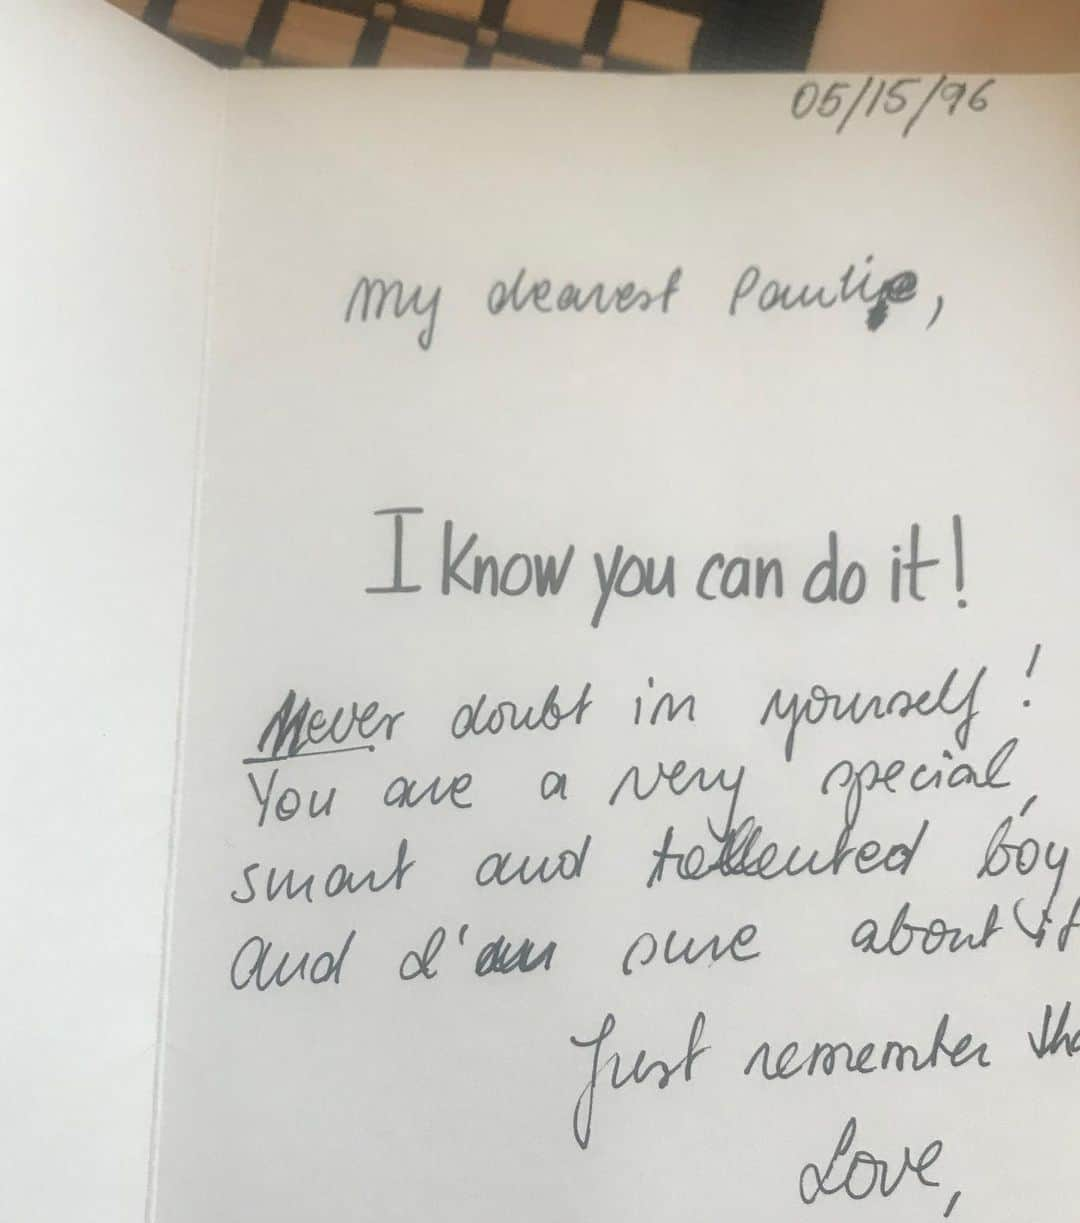 05/15/96
My dearest Paulie,
I know you can do it!
Never doubt in yourself!
You are a very special,
smart and tellented boy
and I'am sure about it
Just remember
Love,